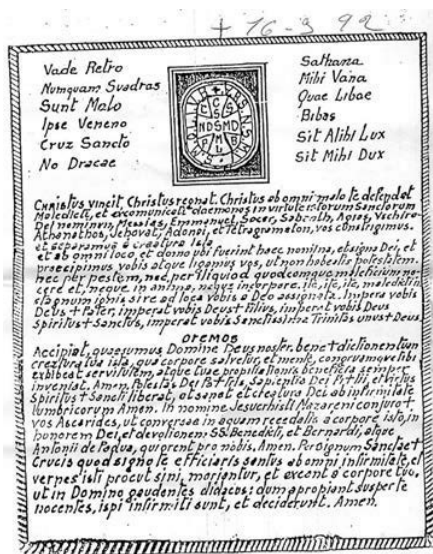 + 16-9 92
Vade Retro
Numquam Suadras
Sunt Malo
Ipse Veneno
Cruz Sancto
No Dracae
Sathana
Mihi Vana
Quae Libae
Bibas
Sit Alihi Lux
Sit Mihi Dux
Christus vincit, Christus regnat. Christus ab omni malo te defendat
Maledicti, et excomunicati daemones in virtute istorum Sanctorum
Dei nominen, Messias, Emmanuel, Socer, Sabaoth, Agios, Yschiro-
Athanathos, Jehovat, Adonai, et Tetragramaton, vos constrigimus.
et separamus a creatura ista
et ab omni loco, et domo ubi fuerint haec nomina, et signa Dei, et
praecipimus vobis atque ligamus vos, ut non habestis potestatem.
nec per pestem, nec, per aliquod quodcomque maleficium no-
cere et, neque in anima, neque incorpore. ite, ite, ite, maledicti in
stagnum ignis sire ad loca vobis a Deo assignata. Impera vobis
Deus + Pater, imperat vobis Deus + Filius, imperat vobis Deus
Spiritus + Sanctus, imperat vobis Sanctissima Trinitas unus + Deus.
OREMOS
Accipiat, quaesumus, Domine Deus noster. bene + dictionen tuan
creatura tua ista, qua corpore salvetur, et mente, congruamque tibi
exibeat servitutem, atque tuae propitiationis beneficia semper
inveniat. Amen. Potestas Dei Pa + tris, Sapientia Dei Fi + lii, et virtus
Spiritus + Sancti liberat, et sanat et creatura Dei ab infirmitate
lumbricorum Amen. In nomine Jesuchristi Nazareni conjuro +
vos Ascarides, ut conversae in aquam recedatis a corpore isto, in
honorem Dei, et devotionem SS. Benedicti, et Bernardi, atque
Antonii de Padua, qui orent pro nobis, Amen. Per signum Sanctae +
Crucis quod signo te efficiaris santus ab omni infirmitate, et
vermes isti procut sini, moriantur, et exeant a corpore tuo,
ut in Domino gaudentes didacos: dum apropiant superte
nocentes, ispi infirmiti sunt, et deciderunt. Amen.